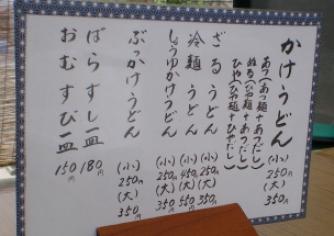 かけうどん (小)250円 (大)350円
あつ(あつ麺+あつだし)
ぬる(ひや麺+あつだし)
ひや(ひや麺+ひやだし)
ざるうどん (小)250円 (大)350円
冷麺うどん (小)450円 (大)550円
しょうゆかけうどん (小)250円 (大)350円
ぶっかけうどん (小)250円 (大)350円
ばらすし一皿 180円
おむすび一皿 150円